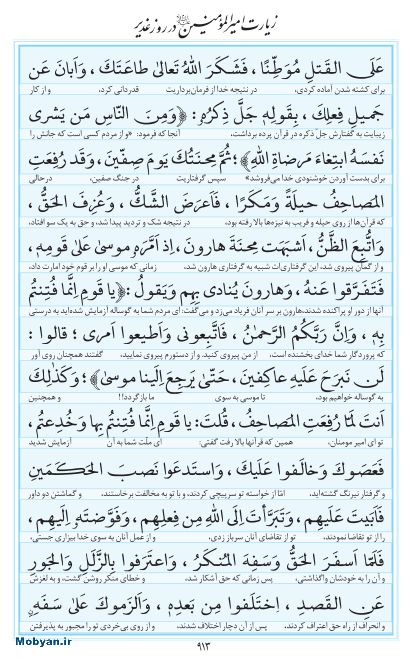 زیارت امیرالمؤمنین علیه السلام در روز غدیر
عَلَى القَتلِ مُوَطِّنًا ، فَشَكَرَ اللهُ تَعالىٰ طاعَتَكَ ، وَأَبانَ عَن
برای کشته شدن آماده کردی، در نتیجه خدا از فرمان‌برداریت قدردانی کرد، و از کار
جَميلِ فِعلِكَ ، بِقَولِهِ جَلَّ ذِكرُهُ: ﴿وَمِنَ النّاسِ مَن يَشرى
زیبایت به گفتارش جلّ ذکره در قرآن پرده برداشت، آنجا که فرمود: «و از مردم کسی است که جانش را
نَفسَهُ ابتِغاءَ مَرضاةِ اللهِ﴾؛ ثُمَّ مِحنَتُكَ يَومَ صِفّينَ ، وَقَد رُفِعَتِ
برای بدست آوردن خوشنودی خدا می‌فروشد» سپس گرفتاریت در جنگ صفین، در حالی
المَصاحِفُ حيلَةً وَمَكرًا ، فَأَعرَضَ الشَّكُّ ، وَعُزِفَ الحَقُّ ،
که قرآن‌ها از روی حیله و فریب به نیزه‌ها بالا رفته بود، در نتیجه شک و تردید پیدا شد، و حق به یک سو افتاد،
وَاتُّبِعَ الظَّنُّ ، أَشبَهَت مِحنَةَ هارونَ، إِذ أَمَّرَهُ موسىٰ عَلىٰ قَومِهِ،
و از گمان پیروی شد، این گرفتاری‌ات شبیه به گرفتاری هارون شد، زمانی که موسی او را بر قوم خود امارت داد،
فَتَفَرَّقوا عَنهُ ، وَهارونُ يُنادى بِهِم وَيَقولُ: ﴿يا قَومِ إِنَّما فُتِنتُم
آنها از دور او پراکنده شدند، هارون بر سر آنان فریاد می‌زد و می‌گفت: ای مردم شما به گوساله آزمایش شده‌اید به درستی
بِهِ، وَإِنَّ رَبَّكُمُ الرَّحمٰنُ ، فَاتَّبِعونى وَأَطيعوا أَمرى ؛ قالوا :
که پروردگار شما خدای بخشنده است، از من پیروی کنید. و از دستورم پیروی نمایید، گفتند همچنان روی آور
لَن نَبرَحَ عَلَيهِ عاكِفينَ، حَتّىٰ يَرجِعَ إِلَينا موسىٰ﴾؛ وَكَذٰلِكَ
به گوساله خواهیم بود، تا موسی به سوی ما بازگردد!! و همچنین
أَنتَ لَمّا رُفِعَتِ المَصاحِفُ، قُلتَ: يا قَومِ إِنَّما فُتِنتُم بِها وَخُدِعتُم،
تو ای امیر مومنان، همین که قرآنها بالا رفت گفتی: ای ملّت شما به آن آزمایش شدید
فَعَصَوكَ وَخالَفوا عَلَيكَ ، وَاستَدعَوا نَصبَ الحَكَمَينِ
و گرفتار نیرنگ گشته‌اید، امّا از خواسته تو سرپیچی کردند، و با تو به مخالفت برخاستند، و گماشتن دو داور
فَأَبَيتَ عَلَيهِم ، وَتَبَرَّأتَ إِلَى اللهِ مِن فِعلِهِم ، وَفَوَّضتَهُ إِلَيهِم،
را از تو تقاضا نمودند، تو از تقاضای آنان سرباز زدی، و از عمل آنان به سوی خدا بیزاری جستی،
فَلَمّا أَسفَرَ الحَقُّ وَسَفِهَ المُنكَرُ ، وَاعتَرَفوا بِالزَّلَلِ وَالجَورِ
و آن را به خودشان واگذاشتی، پس زمانی که حق آشکار شد، و خطای منکر روشن گشت، و به لغزش
عَنِ القَصدِ ، اِختَلَفوا مِن بَعدِهِ ، وَأَلزَموكَ عَلىٰ سَفَهٍ
و انحراف از راه حق اعتراف کردند، پس از آن دچار اختلاف شدند، و از روی بی‌خردی تو را مجبور به پذیرفتن
۹۱۳
Mobyan.ir